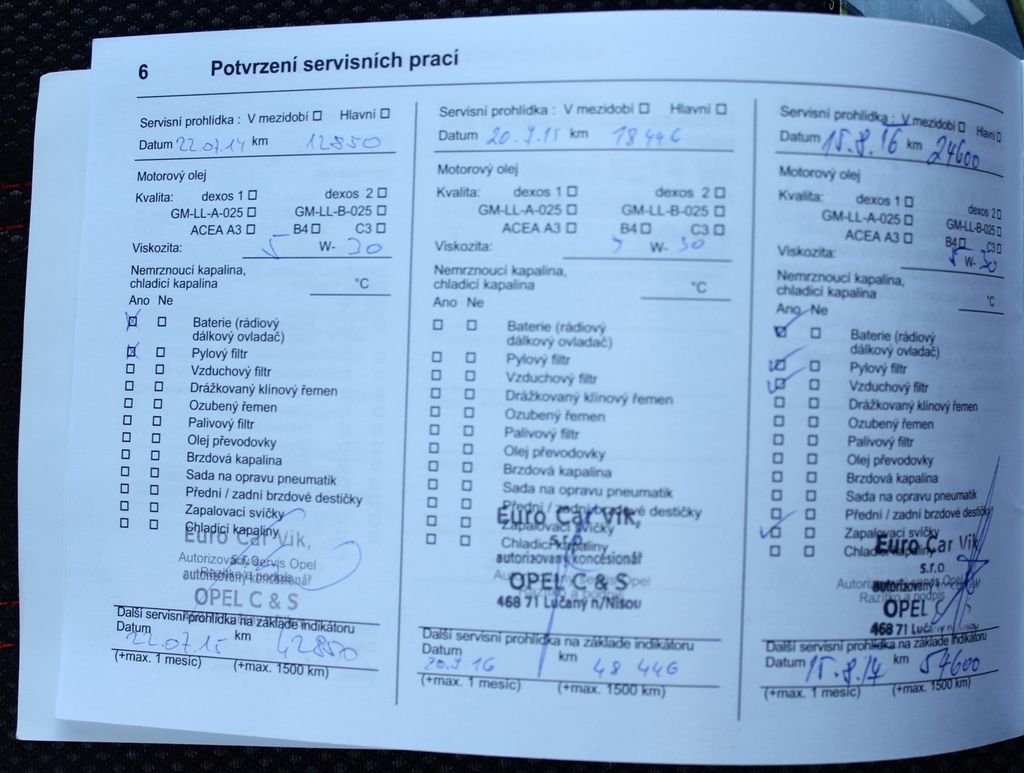 6
Potvrzení servisních prací
Servisní prohlídka : V mezidobí Hlavní
Datum 22.07.14 km 12850
Motorový olej
Kvalita: dexos 1 dexos 2
GM-LL-A-025 GM-LL-B-025
ACEA A3 B4 C3
Viskozita: 5 W- 30
Nemrznoucí kapalina,
chladicí kapalina °C
Ano Ne
Baterie (rádiový
dálkový ovladač)
Pylový filtr
Vzduchový filtr
Drážkovaný klínový řemen
Ozubený řemen
Palivový filtr
Olej převodovky
Brzdová kapalina
Sada na opravu pneumatik
Přední / zadní brzdové destičky
Zapalovací svíčky
Chladicí kapaliny
Euro Car Vik,
s.r.o
Autorizovaný servis Opel
autorizovaný koncesionář
Razítko a podpis
OPEL C & S
Další servisní prohlídka na základě indikátoru
Datum 22.07.15 km 42850
(+max. 1 měsíc) (+max. 1500 km)
Servisní prohlídka : V mezidobí Hlavní
Datum 20.7.15 km 18446
Motorový olej
Kvalita: dexos 1 dexos 2
GM-LL-A-025 GM-LL-B-025
ACEA A3 B4 C3
Viskozita: 5 W- 30
Nemrznoucí kapalina,
chladicí kapalina °C
Ano Ne
Baterie (rádiový
dálkový ovladač)
Pylový filtr
Vzduchový filtr
Drážkovaný klínový řemen
Ozubený řemen
Palivový filtr
Olej převodovky
Brzdová kapalina
Sada na opravu pneumatik
Přední / zadní brzdové destičky
Zapalovací svíčky
Chladicí kapaliny
Euro Car Vik,
s.r.o
autorizovaný koncesionář
OPEL C & S
468 71 Lučany n/Nisou
Další servisní prohlídka na základě indikátoru
Datum 20.7.16 km 48446
(+max. 1 měsíc) (+max. 1500 km)
Servisní prohlídka : V mezidobí Hlavní
Datum 15.8.16 km 24600
Motorový olej
Kvalita: dexos 1 dexos 2
GM-LL-A-025 GM-LL-B-025
ACEA A3 B4 C3
Viskozita: 5 W- 30
Nemrznoucí kapalina,
chladicí kapalina °C
Ano Ne
Baterie (rádiový
dálkový ovladač)
Pylový filtr
Vzduchový filtr
Drážkovaný klínový řemen
Ozubený řemen
Palivový filtr
Olej převodovky
Brzdová kapalina
Sada na opravu pneumatik
Přední / zadní brzdové destičky
Zapalovací svíčky
Chladicí kapaliny
Euro Car Vik
s.r.o
Autorizovaný servis Opel
Razítko a podpis
OPEL C
468 71 Lučany n/Nisou
Další servisní prohlídka na základě indikátoru
Datum 15.8.17 km 54600
(+max. 1 měsíc) (+max. 1500 km)